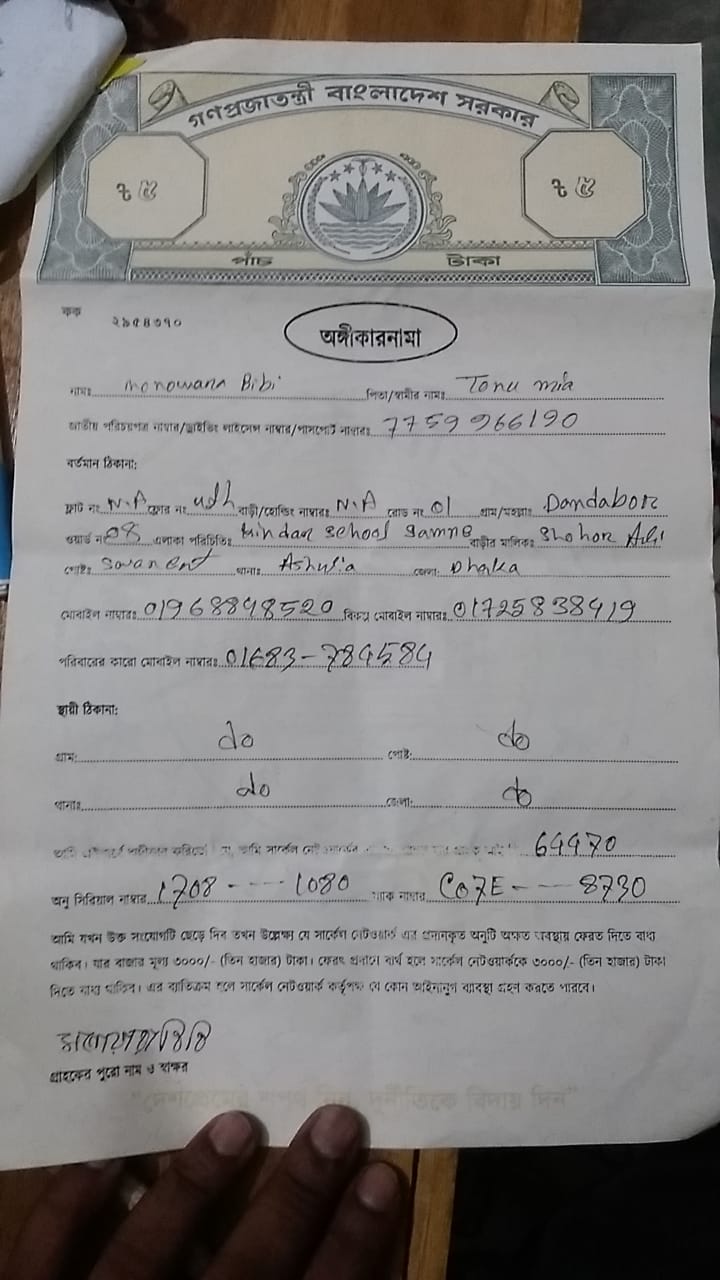 গণপ্রজাতন্ত্রী বাংলাদেশ সরকার
৳ ৫ ৳ ৫
পাঁচ টাকা
কক ২৯৫৪৩৭০
অঙ্গীকারনামা
নামঃ monowara Bibi পিতা/স্বামীর নামঃ Tonu mia
জাতীয় পরিচয়পত্র নাম্বার/ড্রাইভিং লাইসেন্স নাম্বার/পাসপোর্ট নাম্বারঃ 7759966190
বর্তমান ঠিকানা:
ফ্লাট নং N.A ফ্লোর নং udh বাড়ী/হোল্ডিং নাম্বারঃ N.A রোড নং 01 গ্রাম/মহল্লাঃ Dandabor
ওয়ার্ড নং 08 এলাকা পরিচিতিঃ kindar school samne বাড়ীর মালিকঃ Shohor Ali
পোষ্টঃ থানাঃ Ashulia জেলা: Dhaka
মোবাইল নাম্বারঃ 01968848520 বিকল্প মোবাইল নাম্বারঃ 01725838419
পরিবারের কারো মোবাইল নাম্বারঃ 01683-784584
স্থায়ী ঠিকানা:
গ্রাম: do পোষ্ট: do
থানাঃ do জেলা: do
আমি সার্কেল 64470
অনু সিরিয়াল নাম্বার 1708----1080 ম্যাক নাম্বার C07E----8730
আমি যখন উক্ত সংযোগটি ছেড়ে দিব তখন উল্লেক্ষ্য যে সার্কেল নেটওয়ার্ক এর প্রদানকৃত অনুটি অক্ষত অবস্থায় ফেরত দিতে বাধ্য
থাকিব। যার বাজার মূল্য ৩০০০/- (তিন হাজার) টাকা। ফেরৎ প্রদানে ব্যর্থ হলে সার্কেল নেটওয়ার্ককে ৩০০০/- (তিন হাজার) টাকা
দিতে বাধ্য থাকিব। এর ব্যতিক্রম হলে সার্কেল নেটওয়ার্ক কর্তৃপক্ষ যে কোন আইনানুগ ব্যাবস্থা গ্রহণ করতে পারবে।
গ্রাহকের পুরো নাম ও স্বাক্ষর
"দেশপ্রেমের শপথ নিন, দুর্নীতিকে বিদায় দিন"